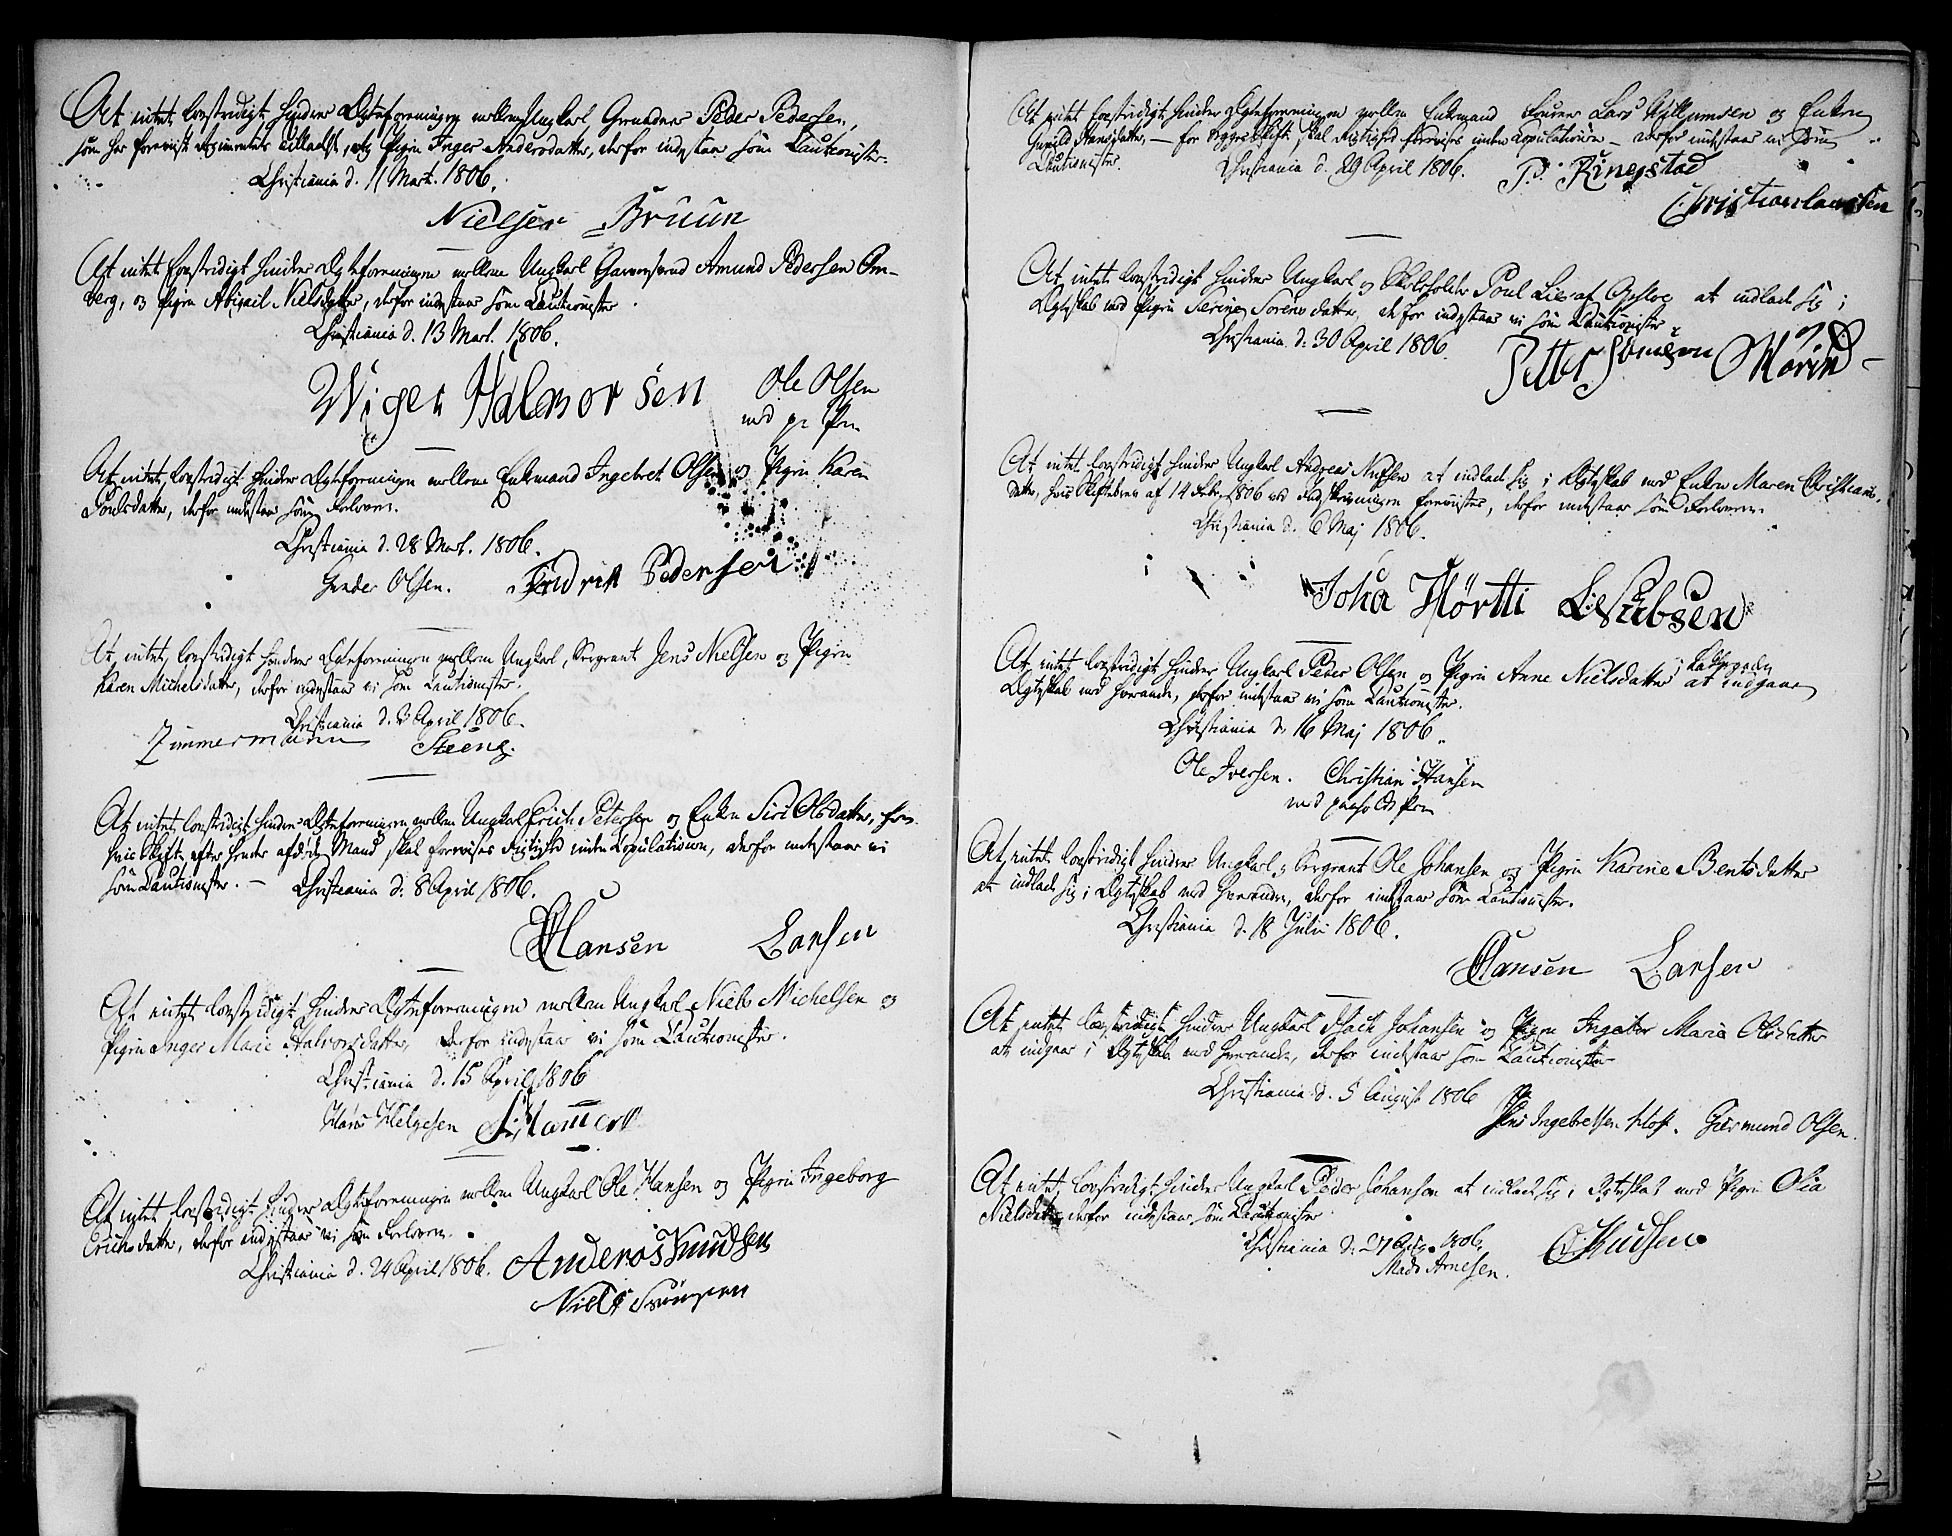 At intet lovstridigt hindrer Ægteforeningen mellem Ungkarl Peder Pedersen,
som har forevist Regimentets Tilladelse, og Pigen Inger Andersdatter, derfor indestaa som Cautionister.
Christiania d. 11 Mart. 1806.
Nielsen Bruun
At intet lovstridigt hindrer Ægteforeningen mellem Ungkarl Amund Pedersen Om-
berg, og Pigen Abigail Nielsdatter, derfor indestaar som Cautionister
Christiania d. 13 Mart. 1806.
Wiger Halvorsen Ole Olsen
med Pen
At intet lovstridigt hindrer Ægteforeningen mellem Enkemand Ingebret Olsen og Pigen Karen
Poulsdatter, derfor indestaar som Forlovere.
Christiania d. 28 Mart. 1806.
Gunder Olsen. Fridrik Pedersen
At intet lovstridigt hindrer Ægteforeningen mellem Ungkarl, Sergeant Jens Nielsen og Pigen
Karen Michelsdatter, derfor indestaar vi som Cautionister.
Christiania d. 8 April 1806.
Zimmermann Steeng.
At intet lovstridigt hindrer Ægteforeningen mellem Ungkarl Erich Petersen og Enken Siri Olsdatter, for
hvis Skifte efter hendes afdøde Mand skal forevises Rigtighed inden Copulationen, derfor indestaar vi
som Cautionister. — Christiania d. 8 April 1806.
Hansen Larsen
At intet lovstridigt hindrer Ægteforeningen mellem Ungkarl Niels Michelsen og
Pigen Inger Marie Halvorsdatter, derfor indestaar vi som Cautionister.
Christiania d. 15 April 1806
Hans Helgesen
At intet lovstridigt hindrer Ægteforeningen mellem Ungkarl Ole Hansen og Pigen Ingeborg
Erichsdatter, derfor indestaar vi som Forlovere.
Christiania d. 24 April 1806. Anders Knudsen
Niels
At intet lovstridigt hindrer Ægteforeningen mellem Enkemand Lars og Enken
— for Skifte skal Rigtighed forevises inden Copulationen — derfor indestaar vi som
Cautionister. Christiania d. 29 April 1806. P. Ringstad
Christian Claussen
At intet lovstridigt hindrer Ungkarl og Skoleholder Poul Lie af Opsloe at indlade sig i
Ægteskab med Pigen Serine Sørensdatter, derfor indestaar vi som Cautionister
Christiania d. 30 April 1806.
Petter
At intet lovstridigt hindrer Ungkarl Andreas Nielsen at indlade sig i Ægteskab med Enken Maren Christians-
datter, hvis Skiftebrev af 14 Febr. 1806 ved Indskrivningen forevistes, derfor indestaar som Forlovere.
Christiania d. 6 Maj 1806.
Joha
At intet lovstridigt hindrer Ungkarl Peder Olsen og Pigen Anne Nielsdatter at indgaae
Ægteskab med hverandre, derfor indestaar vi som Cautionister.
Christiania d. 16 Maj 1806.
Ole Iversen. Christian Hansen
med paaholden Pen
At intet lovstridigt hindrer Ungkarl og Sergeant Ole Johansen og Pigen Karine Bentsdatter
at indlade sig i Ægteskab med hverandre, derfor indestaar som Cautionister.
Christiania d. 18 Julii 1806.
Hansen Larsen
At intet lovstridigt hindrer Ungkarl Johansen og Pigen Ingebor Marie Olsdatter
at indgaar i Ægteskab med hverandre, derfor indestaar som Cautionister
Christiania d. 5 August 1806
Jens Ingebretsen Giermund Olsen.
At intet lovstridigt hindrer Ungkarl Peder Johansen at indlade sig i Ægteskab med Pigen Olia
Nielsdatter, derfor indestaar som Cautionister
Christiania d. 1806.
Mads Arnesen.